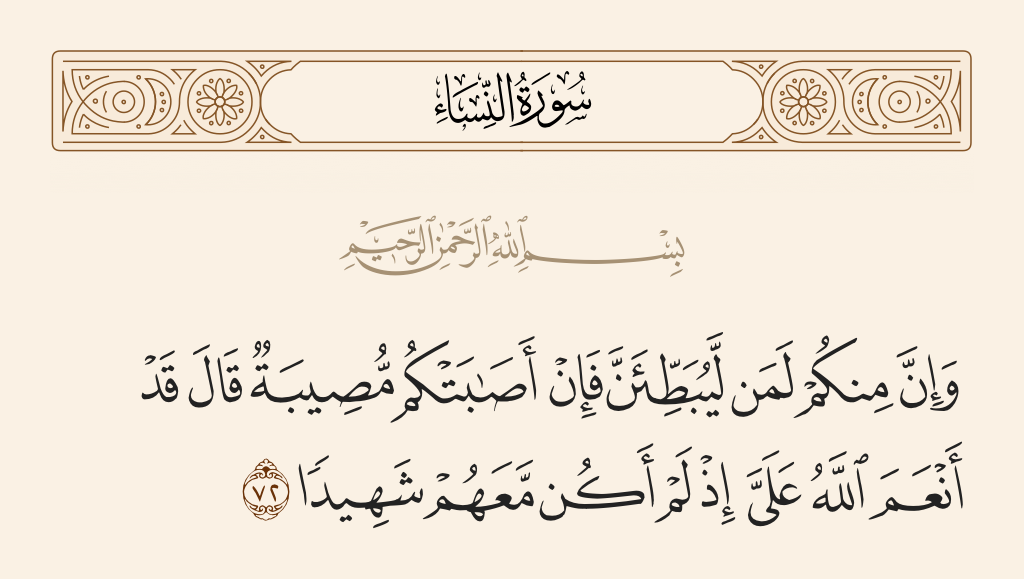 سُورَةُ النِّسَاءِ
بِسْمِ ٱللَّهِ ٱلرَّحْمَٰنِ ٱلرَّحِيمِ
وَإِنَّ مِنكُمْ لَمَن لَّيُبَطِّئَنَّ فَإِنْ أَصَـٰبَتْكُم مُّصِيبَةٌ قَالَ قَدْ
أَنْعَمَ ٱللَّهُ عَلَىَّ إِذْ لَمْ أَكُن مَّعَهُمْ شَهِيدًا ٧٢